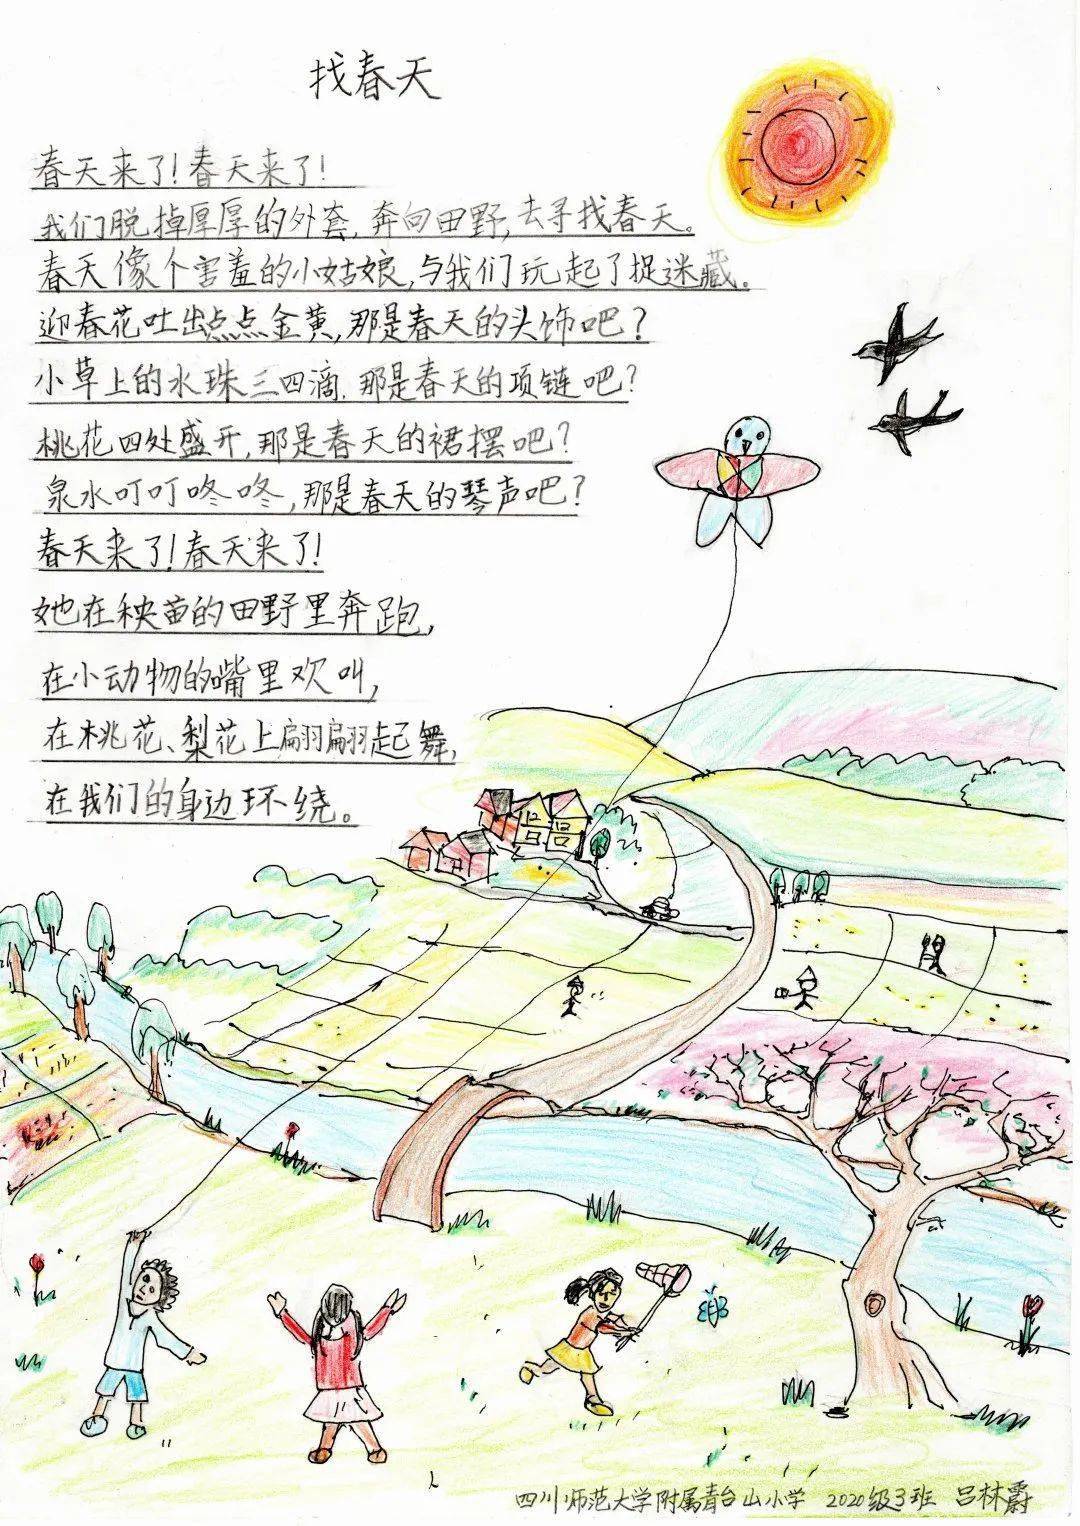 找春天
春天来了!春天来了!
我们脱掉厚厚的外套,奔向田野,去寻找春天。
春天像个害羞的小姑娘,与我们玩起了捉迷藏。
迎春花吐出点点金黄,那是春天的头饰吧?
小草上的水珠三四滴,那是春天的项链吧?
桃花四处盛开,那是春天的裙摆吧?
泉水叮叮咚咚,那是春天的琴声吧?
春天来了!春天来了!
她在秧苗的田野里奔跑,
在小动物的嘴里欢叫,
在桃花、梨花上翩翩起舞,
在我们的身边环绕。
四川师范大学附属青台山小学 2020级3班 吕林爵